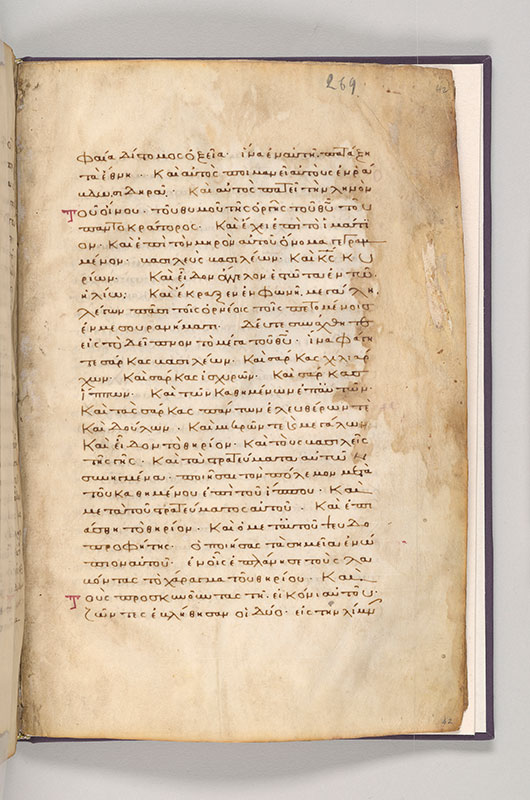 φαία δίστομος ὀξεῖα· ἵνα ἐν αὐτῇ πατάξῃ
τὰ ἔθνη· Καὶ αὐτὸς ποιμανεῖ αὐτοὺς ἐν ῥά
βδω σιδηρᾷ· Καὶ αὐτὸς πατεῖ τὴν ληνὸν
Τοῦ οἴνου· τοῦ θυμοῦ τῆς ὀργῆς τοῦ θυ τοῦ
παντοκράτορος· Καὶ ἔχει ἐπὶ τὸ ἱμάτι
ον· Καὶ ἐπὶ τὸν μηρὸν αὐτοῦ ὄνομα γεγραμ
μένον· βασιλεὺς βασιλέων· Καὶ κς κυ
ρίων· Καὶ εἶδον ἄγγελον ἑστῶτα ἐν τῷ
ἡλίω· Καὶ ἔκραξεν ἐν φωνῇ μεγάλη
λέγων πᾶσι τοῖς ὀρνέοις τοῖς πετομένοις
ἐν μεσουρανήματι· Δεῦτε συνάχθητε
εἰς τὸ δεῖπνον τὸ μέγα τοῦ θυ· ἵνα φάγη
τε σάρκας βασιλέων· Καὶ σάρκας χιλιάρ
χων· Καὶ σάρκας ἰσχυρῶν· Καὶ σάρκας
ἵππων· Καὶ τῶν καθημένων ἐπ' αὐτῶν·
Καὶ τὰς σάρκας πάντων ἐλευθέρων τὲ
Καὶ δούλων· Καὶ μικρῶν τε καὶ μεγάλων·
Καὶ εἶδον τὸ θηρίον· Καὶ τοὺς βασιλεῖς
τῆς γῆς· Καὶ τὰ στρατεύματα αὐτῶν
συνηγμένα· ποιῆσαι τὸν πόλεμον μετὰ
τοῦ καθημένου ἐπὶ τοῦ ἵππου· Καὶ
μετὰ τοῦ στρατεύματος αὐτοῦ· Καὶ ἐπι
άσθη τὸ θηρίον· Καὶ ὁ μετ' αὐτοῦ ψευδο
προφήτης· ὁ ποιήσας τὰ σημεῖα ἐνώ
πιον αὐτοῦ· ἐν οἷς ἐπλάνησε τοὺς λα
βόντας τὸ χάραγμα τοῦ θηρίου· Καὶ
Τοὺς προσκυνοῦντας τῇ εἰκόνι αὐτοῦ·
ζῶντες ἐβλήθησαν οἱ δύο· εἰς τὴν λίμν
269
42
42